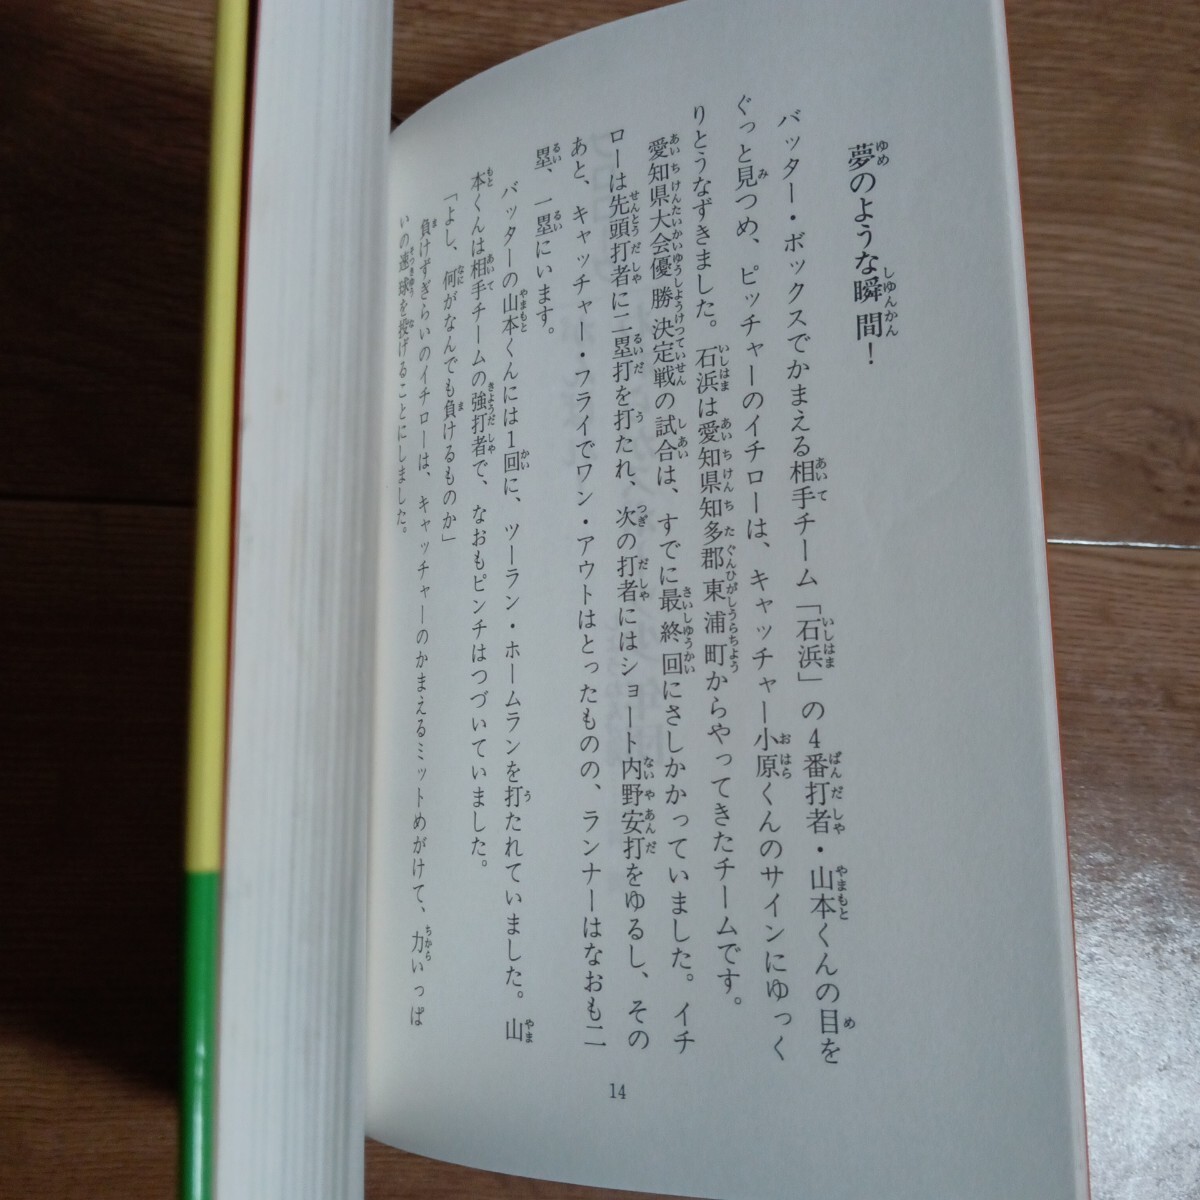 夢のような瞬間！
バッター・ボックスでかまえる相手チーム「石浜」の４番打者・山本くんの目を
ぐっと見つめ、ピッチャーのイチローは、キャッチャー小原くんのサインにゆっく
りとうなずきました。石浜は愛知県知多郡東浦町からやってきたチームです。
愛知県大会優勝決定戦の試合は、すでに最終回にさしかかっていました。イチ
ローは先頭打者に二塁打を打たれ、次の打者にはショート内野安打をゆるし、その
あと、キャッチャー・フライでワン・アウトはとったものの、ランナーはなおも二
塁、一塁にいます。
バッターの山本くんには１回に、ツーラン・ホームランを打たれていました。山
本くんは相手チームの強打者で、なおもピンチはつづいていました。
「よし、何がなんでも負けるものか」
負けずぎらいのイチローは、キャッチャーのかまえるミットめがけて、力いっぱ
いの速球を投げることにしました。
14